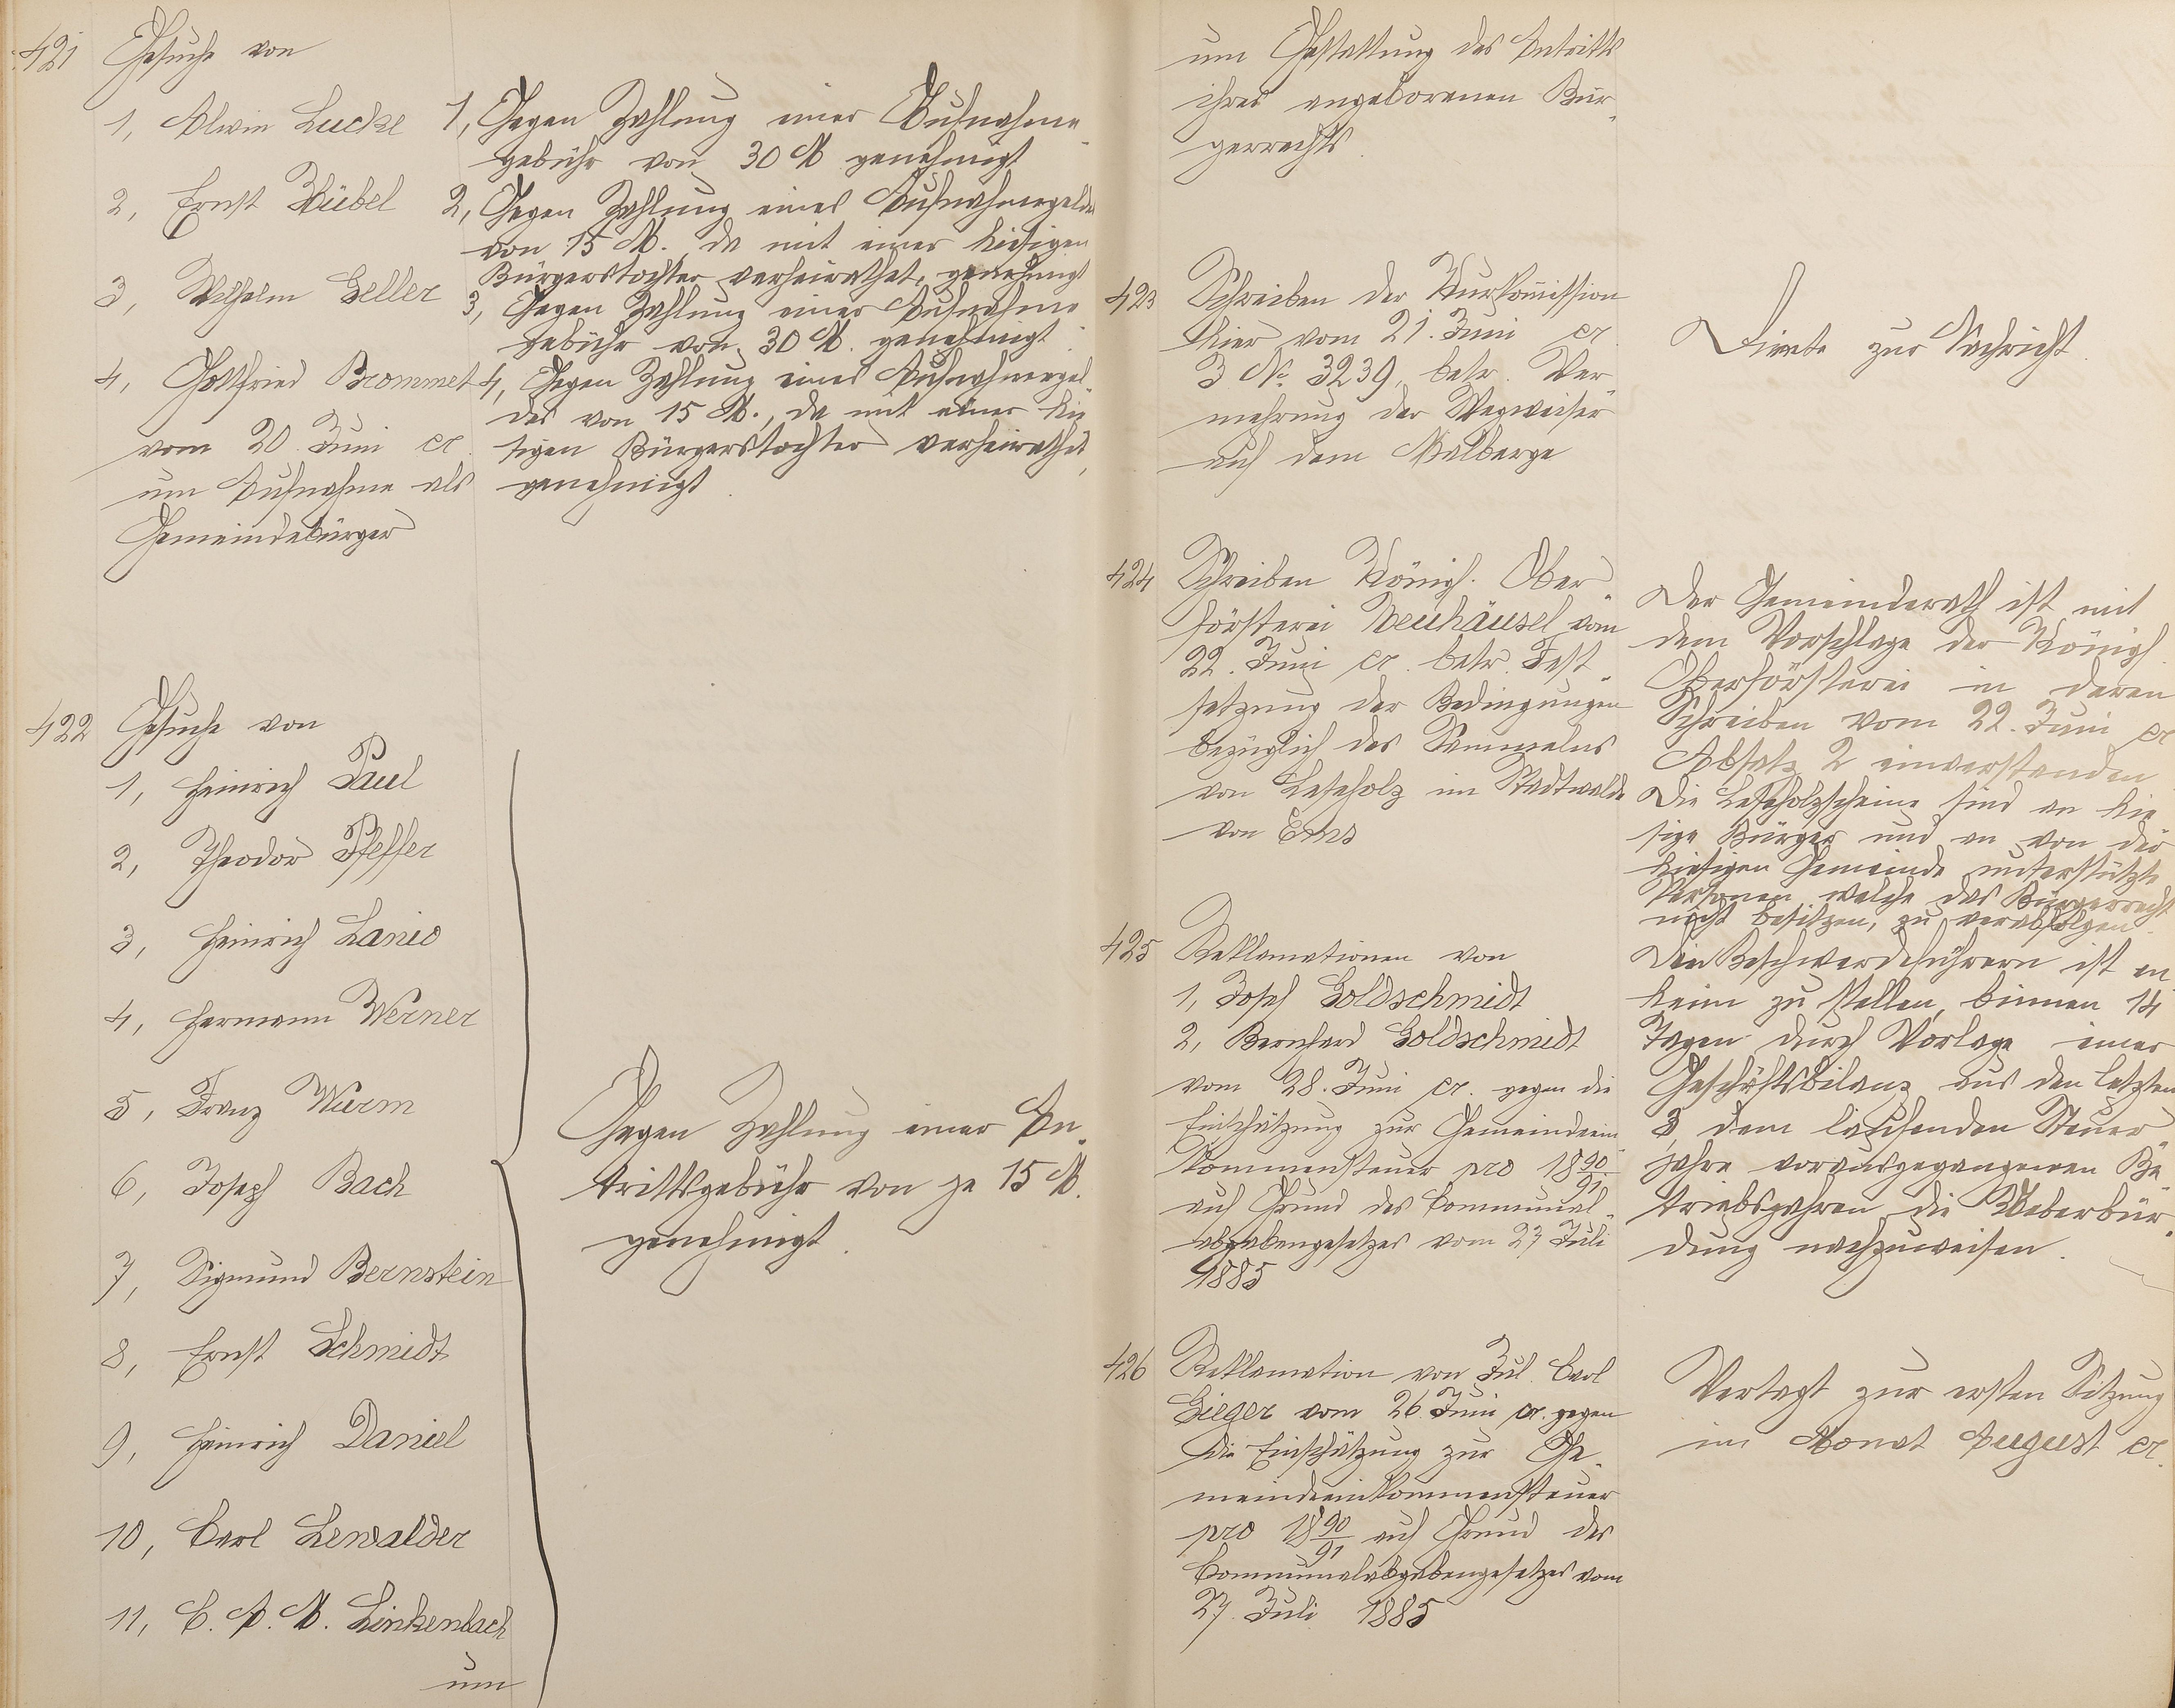 421 Gesuche von
1, Alwin Lucke
2, Ernst Zübel
3, Wilhelm Geller
4, Gottfried Brommet
vom 20. Juni cr.
um Aufnahme als
Gemeindebürger
1, Gegen Zahlung einer Aufnahme-
gebühr von 30 M genehmigt
2, Gegen Zahlung eines Aufnahmegeldes
von 15 M. da mit einer hiesigen
Bürgerstochter verheirathet, genehmigt
3, Gegen Zahlung einer Aufnahme
gebühr von 30 M. genehmigt.
4, Gegen Zahlung eines Aufnahmegel-
des von 15 M., da mit einer hie
sigen Bürgerstochter verheirathet,
genehmigt.
422 Gesuche von
1, Heinrich Paul
2, Theodor Pfeffer
3, Heinrich Lanio
4, Hermann Werner
5, Franz Wurm
6, Joseph Bach
7, Sigmund Bernstein
8, Ernst Schmidt
9, Heinrich Daniel
10, Carl Lewalder
11, C. A. M. Linkenbach
um
Gegen Zahlung einer An-
trittsgebühr von je 15 M.
genehmigt.
um Gestattung des Antritts
ihres angeborenen Bür-
gerrechts.
423 Schreiben der Kurkommission
hier vom 21. Juni cr.
J No. 3239, betr. Ver-
mehrung der Wegweiser
auf dem Malberge
Diente zur Nachricht.
424 Schreiben Königl. Ober-
försterei Neuhäusel vom
22. Juni cr. betr. Fest-
setzung der Bedingungen
bezüglich des Sammelns
von Leseholz im Stadtwalde
von Ems
Der Gemeinderath ist mit
dem Vorschlage der Königl.
Oberförsterei in deren
Schreiben vom 22. Juni cr
Absatz 2 einverstanden
Die Leseholzscheine sind an hie
sige Bürger und an von der
hiesigen Gemeinde unterstützte
Personen, welche das Bürgerrecht
nicht besitzen, zu verabfolgen.
425 Reklamationen von
1, Josef Goldschmidt
2, Bernhard Goldschmidt
vom 28. Juni cr. gegen die
Einschätzung zur Gemeindeein-
kommensteuer pro 1890/91
auf Grund des Communal-
abgabengesetzes vom 27 Juli
1885
Den Beschwerdeführern ist an
heim zu stellen, binnen 14
Tagen durch Vorlage einer
Geschäftsbilanz aus den letzten
3, dem laufenden Steuer-
jahre vorausgegangenen Be-
triebsjahren die Ueberbür-
dung nachzuweisen.
426 Reklamation von Jul. Carl
Gieger vom 26. Juni cr. gegen
die Einschätzung zur Ge-
meindeeinkommensteuer
pro 1890/91 auf Grund des
Communalabgabengesetzes vom
27. Juli 1885
Vertagt zur ersten Sitzung
im Monat August cr.